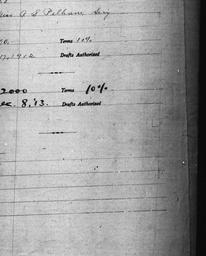 A S Pelham Secy
Terms 10%
1912 Drafts Authorized
2000 Terms 10%
ec. 8, '13. Drafts Authorized